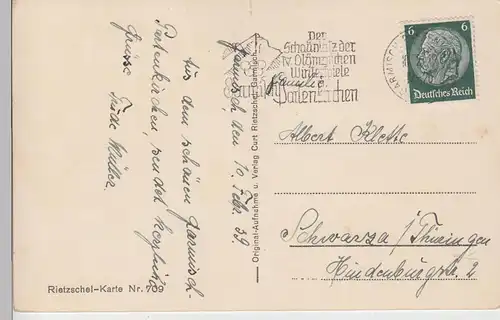 Garmisch, den 10. Febr. 39.
Aus dem schönen Garmisch-
Partenkirchen, sendet herzliche
Grüsse
Rietzschel-Karte Nr. 709
Original-Aufnahme u. Verlag Curt Rietzschel, Garmisch
Der
Schauplatz der
IV. Olympischen
Winterspiele
Garmisch
Partenkirchen
GARMISCH
6 6
Deutsches Reich
Familie
Albert Klette
Schwarza / Thüringen
Hindenburgstr. 2